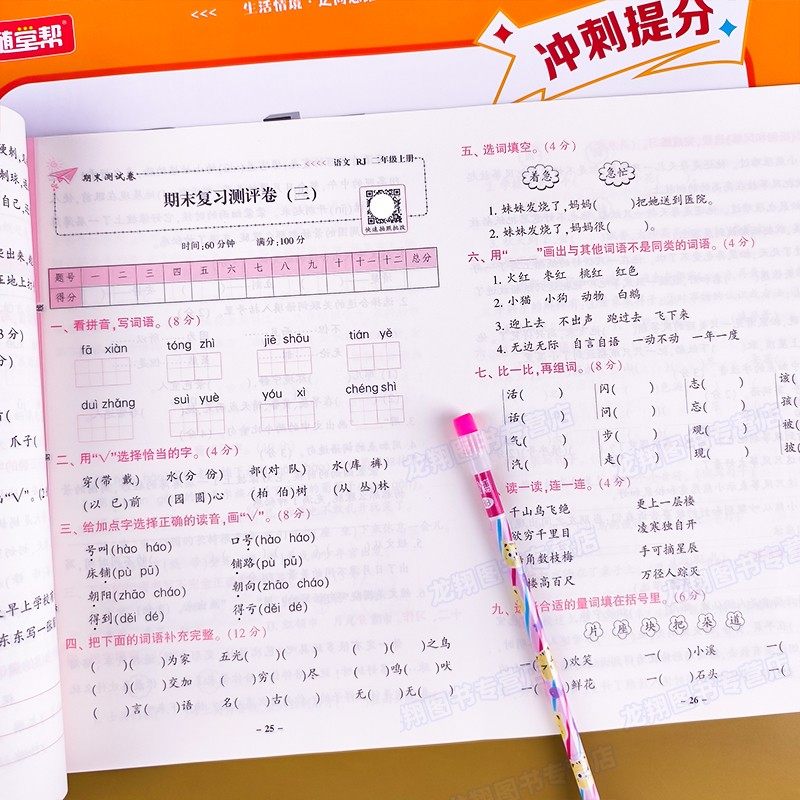 随堂帮
<<<
冲刺提分
期末测试卷
<<<< 语文 RJ 二年级上册
期末复习测评卷（三）
快速拍照批改
时间:60分钟 满分:100分
题号 一 二 三 四 五 六 七 八 九 十 十一 十二 总分
得分
一、看拼音,写词语。(8分)
fā xiàn tóng zhì jiē shōu tián yě
duì zhǎng suì yuè yóu xì chéng shì
二、用"√"选择恰当的字。(4分)
穿(带 戴) 水(分 份) 部(对 队) 水(库 裤)
(以 已)前 (园 圆)心 (柏 伯)树 (从 丛)林
三、给加点字选择正确的读音,画"√"。(8分)
号叫(hào háo) 口号(hào háo)
床铺(pù pū) 铺路(pù pū)
朝阳(zhāo cháo) 朝向(zhāo cháo)
得到(děi dé) 得亏(děi dé)
四、把下面的词语补充完整。(12分)
( )( )为家 五光( )( ) ( )( )之鸟
( )( )交加 ( )穷( )尽 ( )鸣( )吠
( )言( )语 名( )古( ) 无( )无( )
- 25 -
五、选词填空。(4分)
着急 急忙
1. 妹妹发烧了,妈妈( )把她送到医院。
2. 妹妹发烧了,妈妈很( )。
六、用"____"画出与其他词语不是同类的词语。(4分)
1. 火红 枣红 桃红 红色
2. 小猫 小狗 动物 白鹅
3. 迎上去 不出声 跑过去 飞下来
4. 无边无际 自言自语 一动不动 一年一度
七、比一比,再组词。(8分)
活( ) 闪( ) 志( ) 该(
话( ) 问( ) 忘( ) 孩(
气( ) 步( ) 观( )
汽( ) 走( ) 现( )
读一读,连一连。(4分)
千山鸟飞绝 更上一层楼
欲穷千里目 凌寒独自开
角数枝梅 手可摘星辰
楼高百尺 万径人踪灭
九、选合适的量词填在括号里。(6分)
片 座 块 把 朵 道
一( )欢笑 一( )小溪 一(
一( )鲜花 一( )石头 一(
- 26 -
爪子(
早上学校
东东写一张
龙翔图书专营店